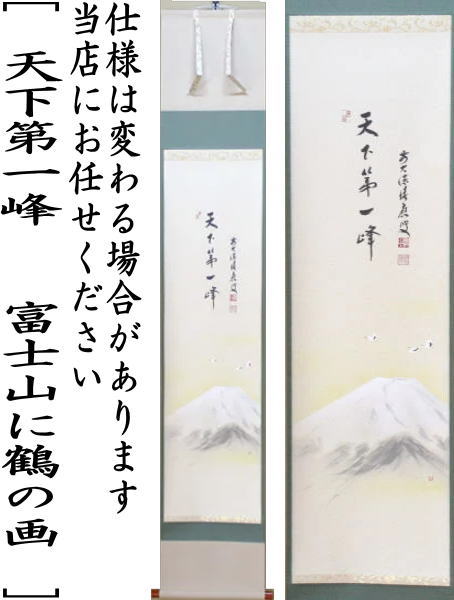 仕様は変わる場合があります
当店にお任せください
[天下第一峰 富士山に鶴の画]
天下第一峰
天下第一峰